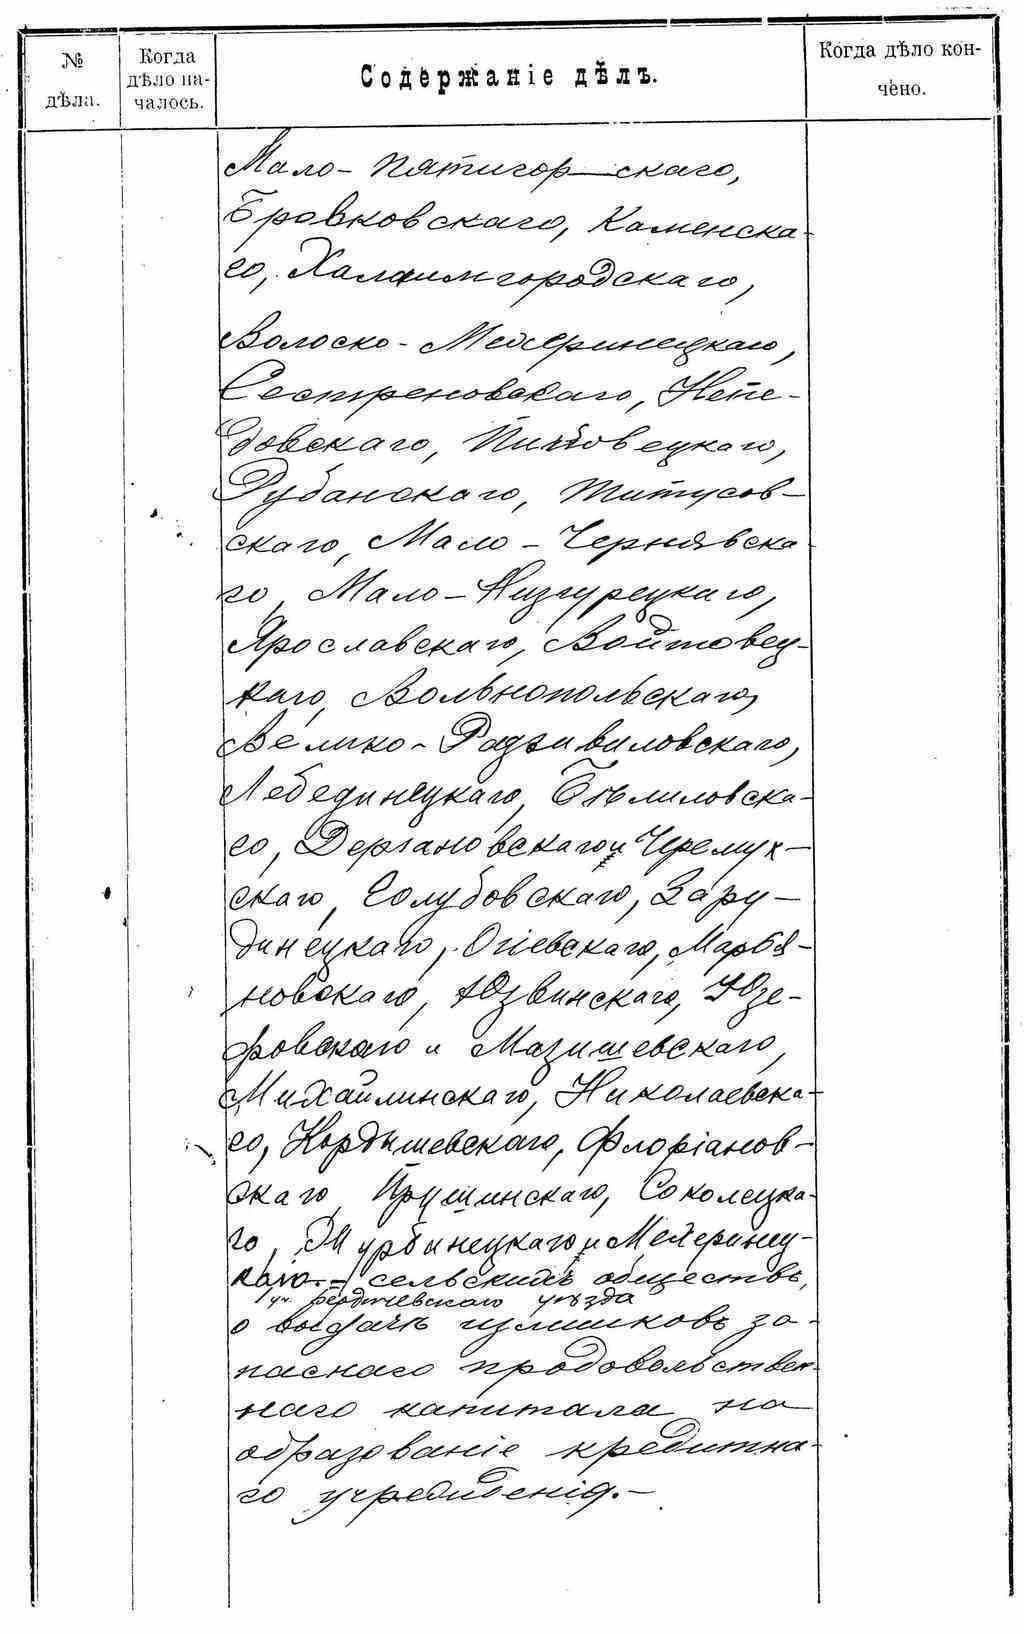 № дѣла.
Когда дѣло на-
чалось.
Содержаніе дѣлъ.
Когда дѣло кон-
чено.
Мало-Пятигорскаго,
Бровковскаго, Каменска-
го, Халаимгородскаго,
Волоско-Мейеринецкаго,
Сестреновскаго, Непе-
довскаго, Пиковецкаго,
Рубанскаго, Титусов-
скаго, Мало-Чернявска
го, Мало-Низгурецкаго,
Ярославскаго, Войтовец-
каго, Вольнопольскаго,
Велико-Радзивиловскаго,
Лебединецкаго, Бѣлиловска-
го, Дергановскаго и Черемух-
скаго, Голубовскаго, Зару-
динецкаго, Огіевскаго, Марья-
новскаго, Юзвинскаго, Юзе-
фовскаго и Мазишевскаго,
Михайлинскаго, Николаевска-
го, Кордышевскаго, Флоріанов-
скаго, Прушинскаго, Соколецка-
го, Турбинецкаго и Мейеринец-
каго.- сельскихъ обществъ,
Бердичевскаго уѣзда
о выдачѣ излишковъ за-
паснаго продовольствен-
наго капитала на
образованіе кредитна-
го учрежденія.-